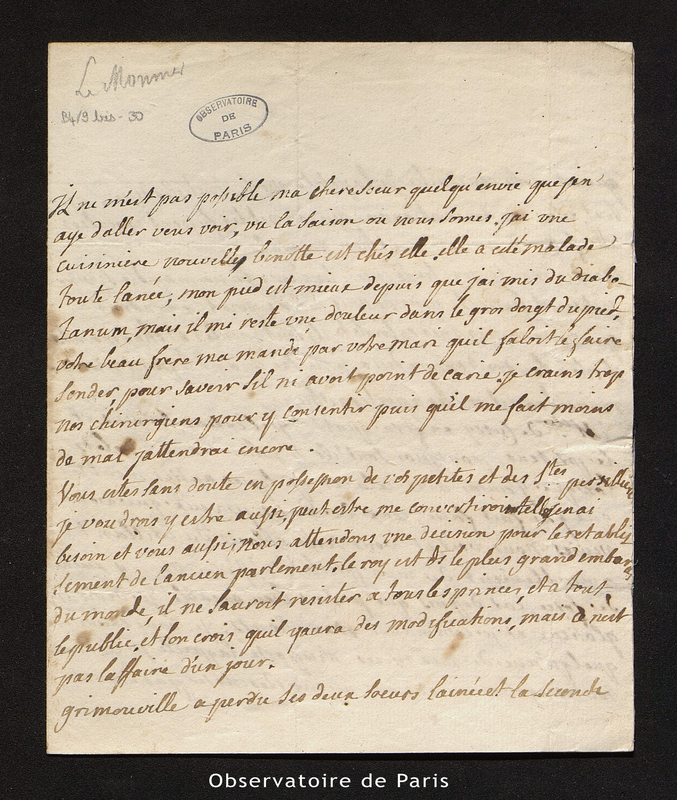 Le Monnier
B4/9 bis - 30
OBSERVATOIRE
DE
PARIS
Il ne m'est pas possible ma chere soeur quelqu'envie que j'en
aye d'aller vous voir, vu la saison ou nous somes. j'ai une
cuisiniere nouvelle, benoitte est chés elle, elle a eté malade
toute l'anée, mon pied est mieux depuis que j'ai mis du diabo-
tanum, mais il mi reste une douleur dans le gros doigt du pied.
votre beau frere ma mandé par votre mari qu'il faloit le faire
sonder, pour savoir s'il ni avoit point de carie. je crains trop
nos chirurgiens pour y consentir puis qu'il me fait moins
de mal j'attendrai encore.
Vous estes sans doute en possession de vos petites et des Stes
je voudrois y estre aussi, peut estre me convertiroientelles j'en ai
besoin et vous aussi, nous attendons une decision pour le retablis
sement de l'ancien parlement. le roy est ds le plus grand embaras
du monde, il ne sauroit resister a tous les princes, et a tout
le public, et l'on crois qu'il y aura des modifications, mais ce n'est
pas l'affaire d'un jour.
grimouville a perdu ses deux soeurs l'ainée et la seconde
Observatoire de Paris